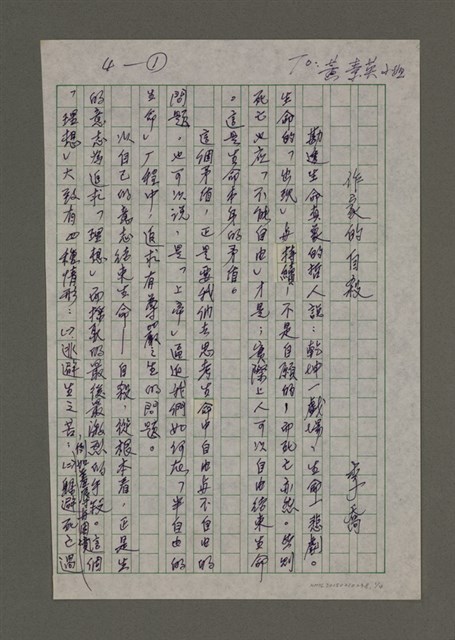 4—①
To: 黃章英小姐
作家的自殺
李喬
勘透生命真象的哲人說:乾坤一戲場,生命一悲劇。
生命的「出現」與持續,不是自願的,而死亡亦然。告別
死亡也應「不能自由」才是;實際上人可以自由結束生命
。這是生命本身的矛盾。
這個矛盾,正是要我們去思考生命中自由與不自由的
問題。也可以說,是「上帝」逼迫我們如何在「半自由的
生命」厂程中,追求有尊嚴之生的問題。
以自己的意志結束生命——自殺,從根本看,正是生
的意志為追求「理想」而採取的最後最激烈的手段。這個
「理想」大致有四種情形:(1)逃避生之苦,(2)躲避死之過